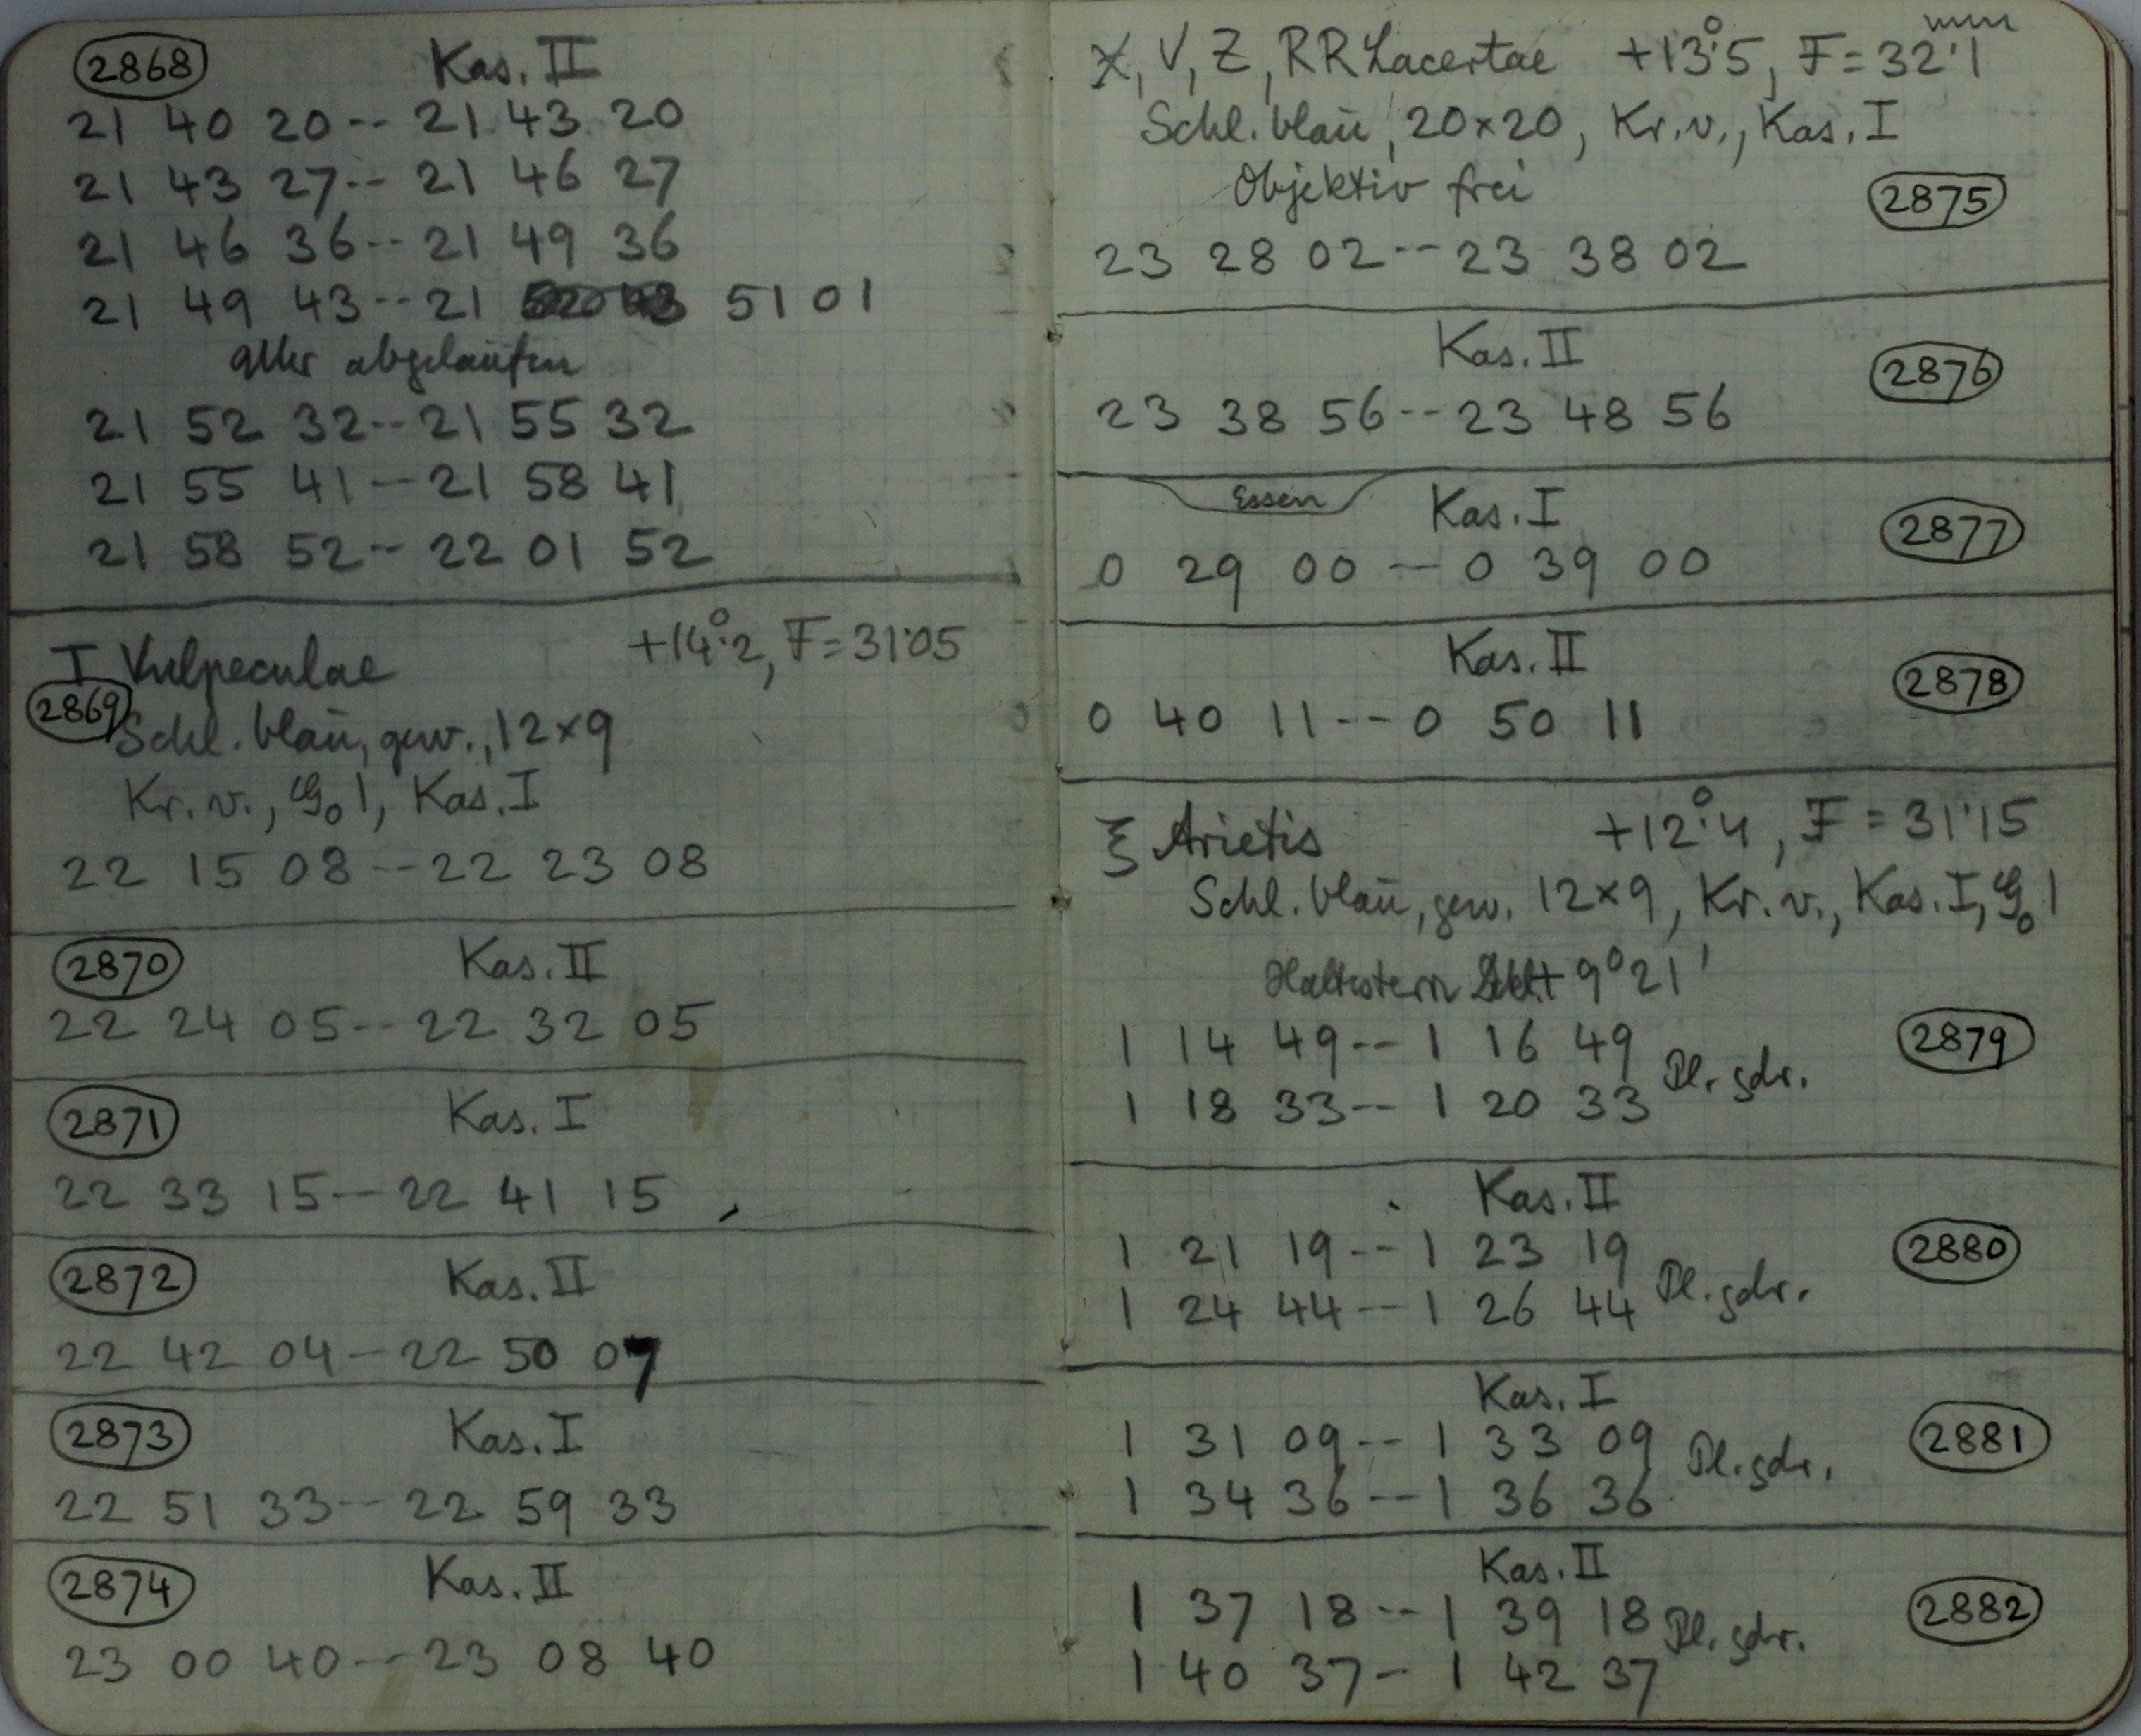 2868 Kas. II
21 40 20--21 43 20
21 43 27--21 46 27
21 46 36--21 49 36
21 49 43--21 51 01
abgelaufen
21 52 32--21 55 32
21 55 41--21 58 41
21 58 52--22 01 52
T Vulpeculae +14°.2, F=31.05
2869 Schl. blau, gew., 12×9
Kr. v., G₀ 1, Kas. I
22 15 08--22 23 08
2870 Kas. II
22 24 05--22 32 05
2871 Kas. I
22 33 15--22 41 15
2872 Kas. II
22 42 04--22 50 07
2873 Kas. I
22 51 33--22 59 33
2874 Kas. II
23 00 40--23 08 40
X, V, Z, RR Lacertae +13°.5, F=32.1
Schl. blau, 20×20, Kr. v., Kas. I
Objektiv frei 2875
23 28 02--23 38 02
Kas. II 2876
23 38 56--23 48 56
Essen Kas. I 2877
0 29 00--0 39 00
Kas. II 2878
0 40 11--0 50 11
ξ Arietis +12°.4, F=31.15
Schl. blau, gew. 12×9, Kr. v., Kas. I, G₀ 1
Haltestern +9°21'
1 14 49--1 16 49 Pl. gdr. 2879
1 18 33--1 20 33
Kas. II
1 21 19--1 23 19 Pl. gdr. 2880
1 24 44--1 26 44
Kas. I
1 31 09--1 33 09 Pl. gdr. 2881
1 34 36--1 36 36
Kas. II
1 37 18--1 39 18 Pl. gdr. 2882
1 40 37--1 42 37